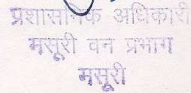 प्रशासनिक अधिकारी
मसूरी वन प्रभाग
मसूरी